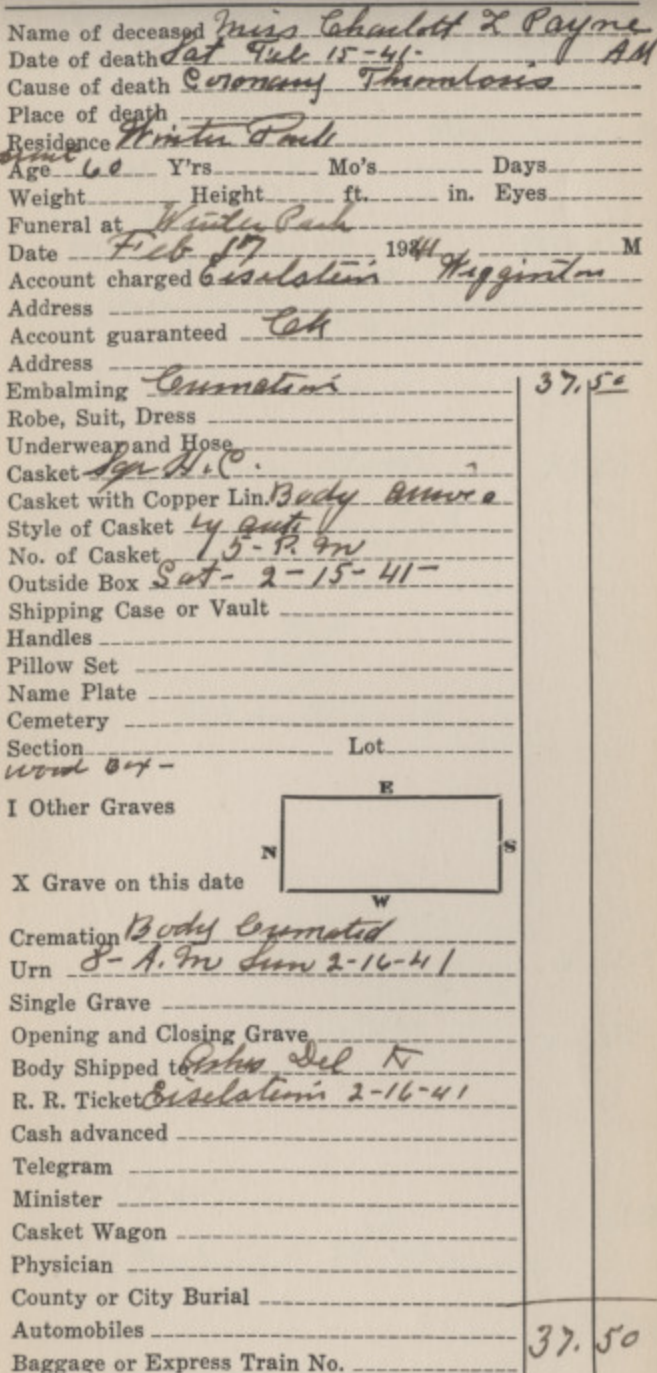 Name of deceased Miss Charlott L Payne
Date of death Sat Feb 15-41- AM
Cause of death Coronary Thrombosis
Place of death
Residence Winter Park
about
Age 60 Y'rs Mo's Days
Weight Height ft. in. Eyes
Funeral at Winter Park
Date Feb 17 1941 M
Account charged Eiselstein Wigginton
Address
Account guaranteed Ck
Address
Embalming Cremation 37.50
Robe, Suit, Dress
Underwear and Hose
Casket Sgr H.C.
Casket with Copper Lin. Body arrive
Style of Casket by auto
No. of Casket 5-P.M
Outside Box Sat- 2-15-41-
Shipping Case or Vault
Handles
Pillow Set
Name Plate
Cemetery
Section Lot
wood Box -
E
I Other Graves
N S
X Grave on this date
W
Cremation Body Cremated
Urn 8- A.M Sun 2-16-41
Single Grave
Opening and Closing Grave
Body Shipped to Ashes Del to
R. R. Ticket Eiselsteins 2-16-41
Cash advanced
Telegram
Minister
Casket Wagon
Physician
County or City Burial
Automobiles 37.50
Baggage or Express Train No.